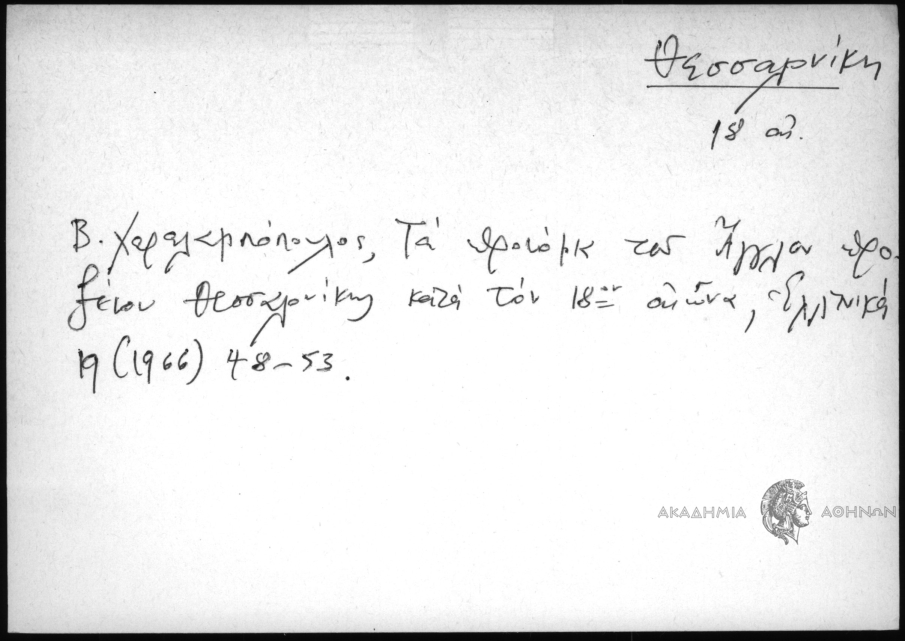 Θεσσαλονίκη
18 αἰ.
Β. Χαραλαμπόπουλος, Τά προνόμια τοῦ Ἄγγλου προ-
ξένου Θεσσαλονίκης κατά τόν 18ον αἰῶνα, Ἑλληνικά
19 (1966) 48-53.
ΑΚΑΔΗΜΙΑ ΑΘΗΝΩΝ